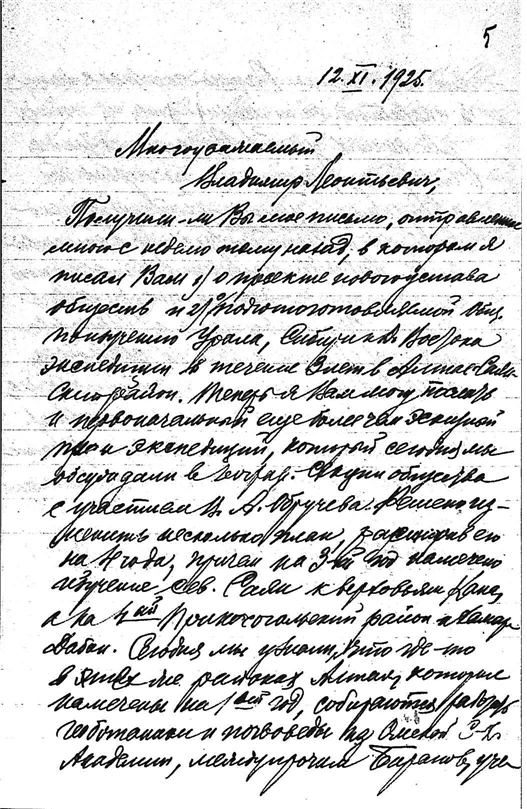 5
12.XI.1925.
Многоуважаемый
Владимир Леонтьевич,
Получили-ли Вы мое письмо, отправленное
мною с неделю тому назад, в котором я
писал Вам 1) о проекте нового устава
обществ и 2) о подготовляемой Общ.
Урала, Сибири и Д. Востока
экспедиции в течение 3 лет в Алтае-Саян-
ский район. Теперь я Вам могу послать
и первоначальный еще более чем эскизный
план экспедиций, который сегодня мы
обсуждали в географ. секции общества
с участием В. А. Обручева. Решено из-
менить несколько план, расширив его
на 4 года, причем на 3-ий год намечено
изучение сев. Саян к верховьям Кана,
а на 4-ый Прикосогольский район и Хамар
Дабан. Сегодня мы узнали, что где-то
в этих же районах Алтая, которые
намечены на 1-ый год, собираются работать
геоботаники и почвоведы из Омской С-Х.
Академии, между прочим Баранов, уче